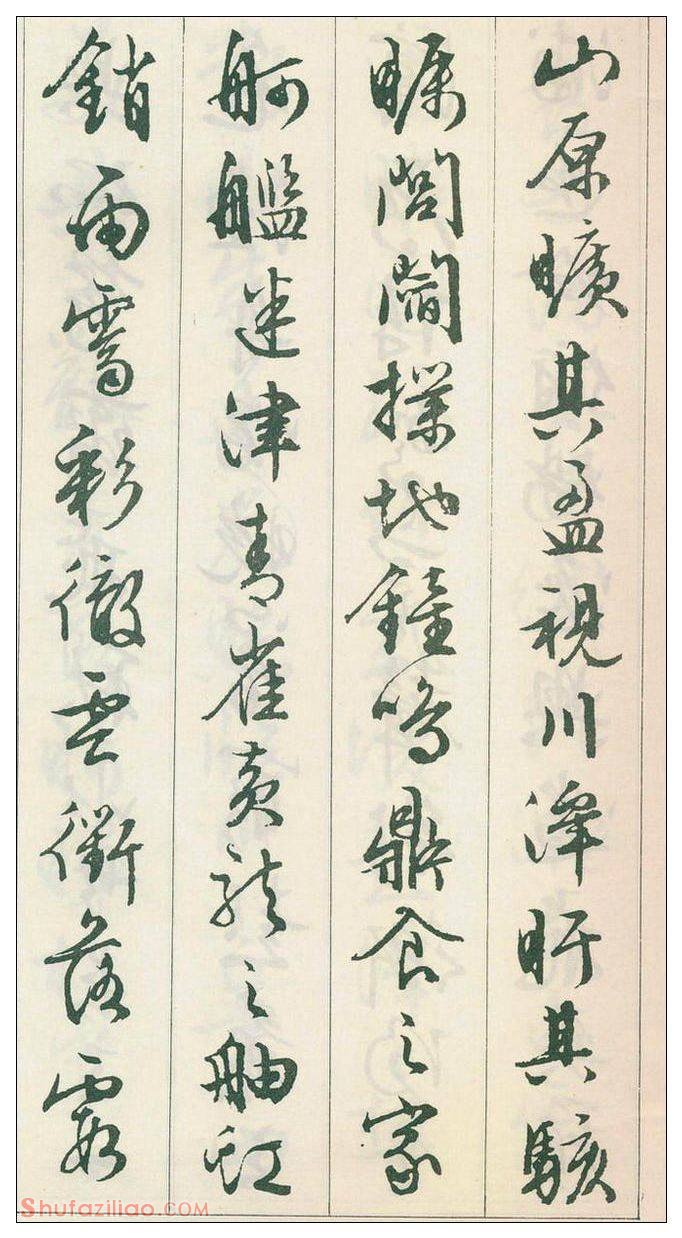 山原曠其盈視川澤盱其駭
矚閭閻撲地鐘鳴鼎食之家
舸艦迷津青雀黃龍之舳虹
銷雨霽彩徹雲衢落霞
Shufaziliao.COM